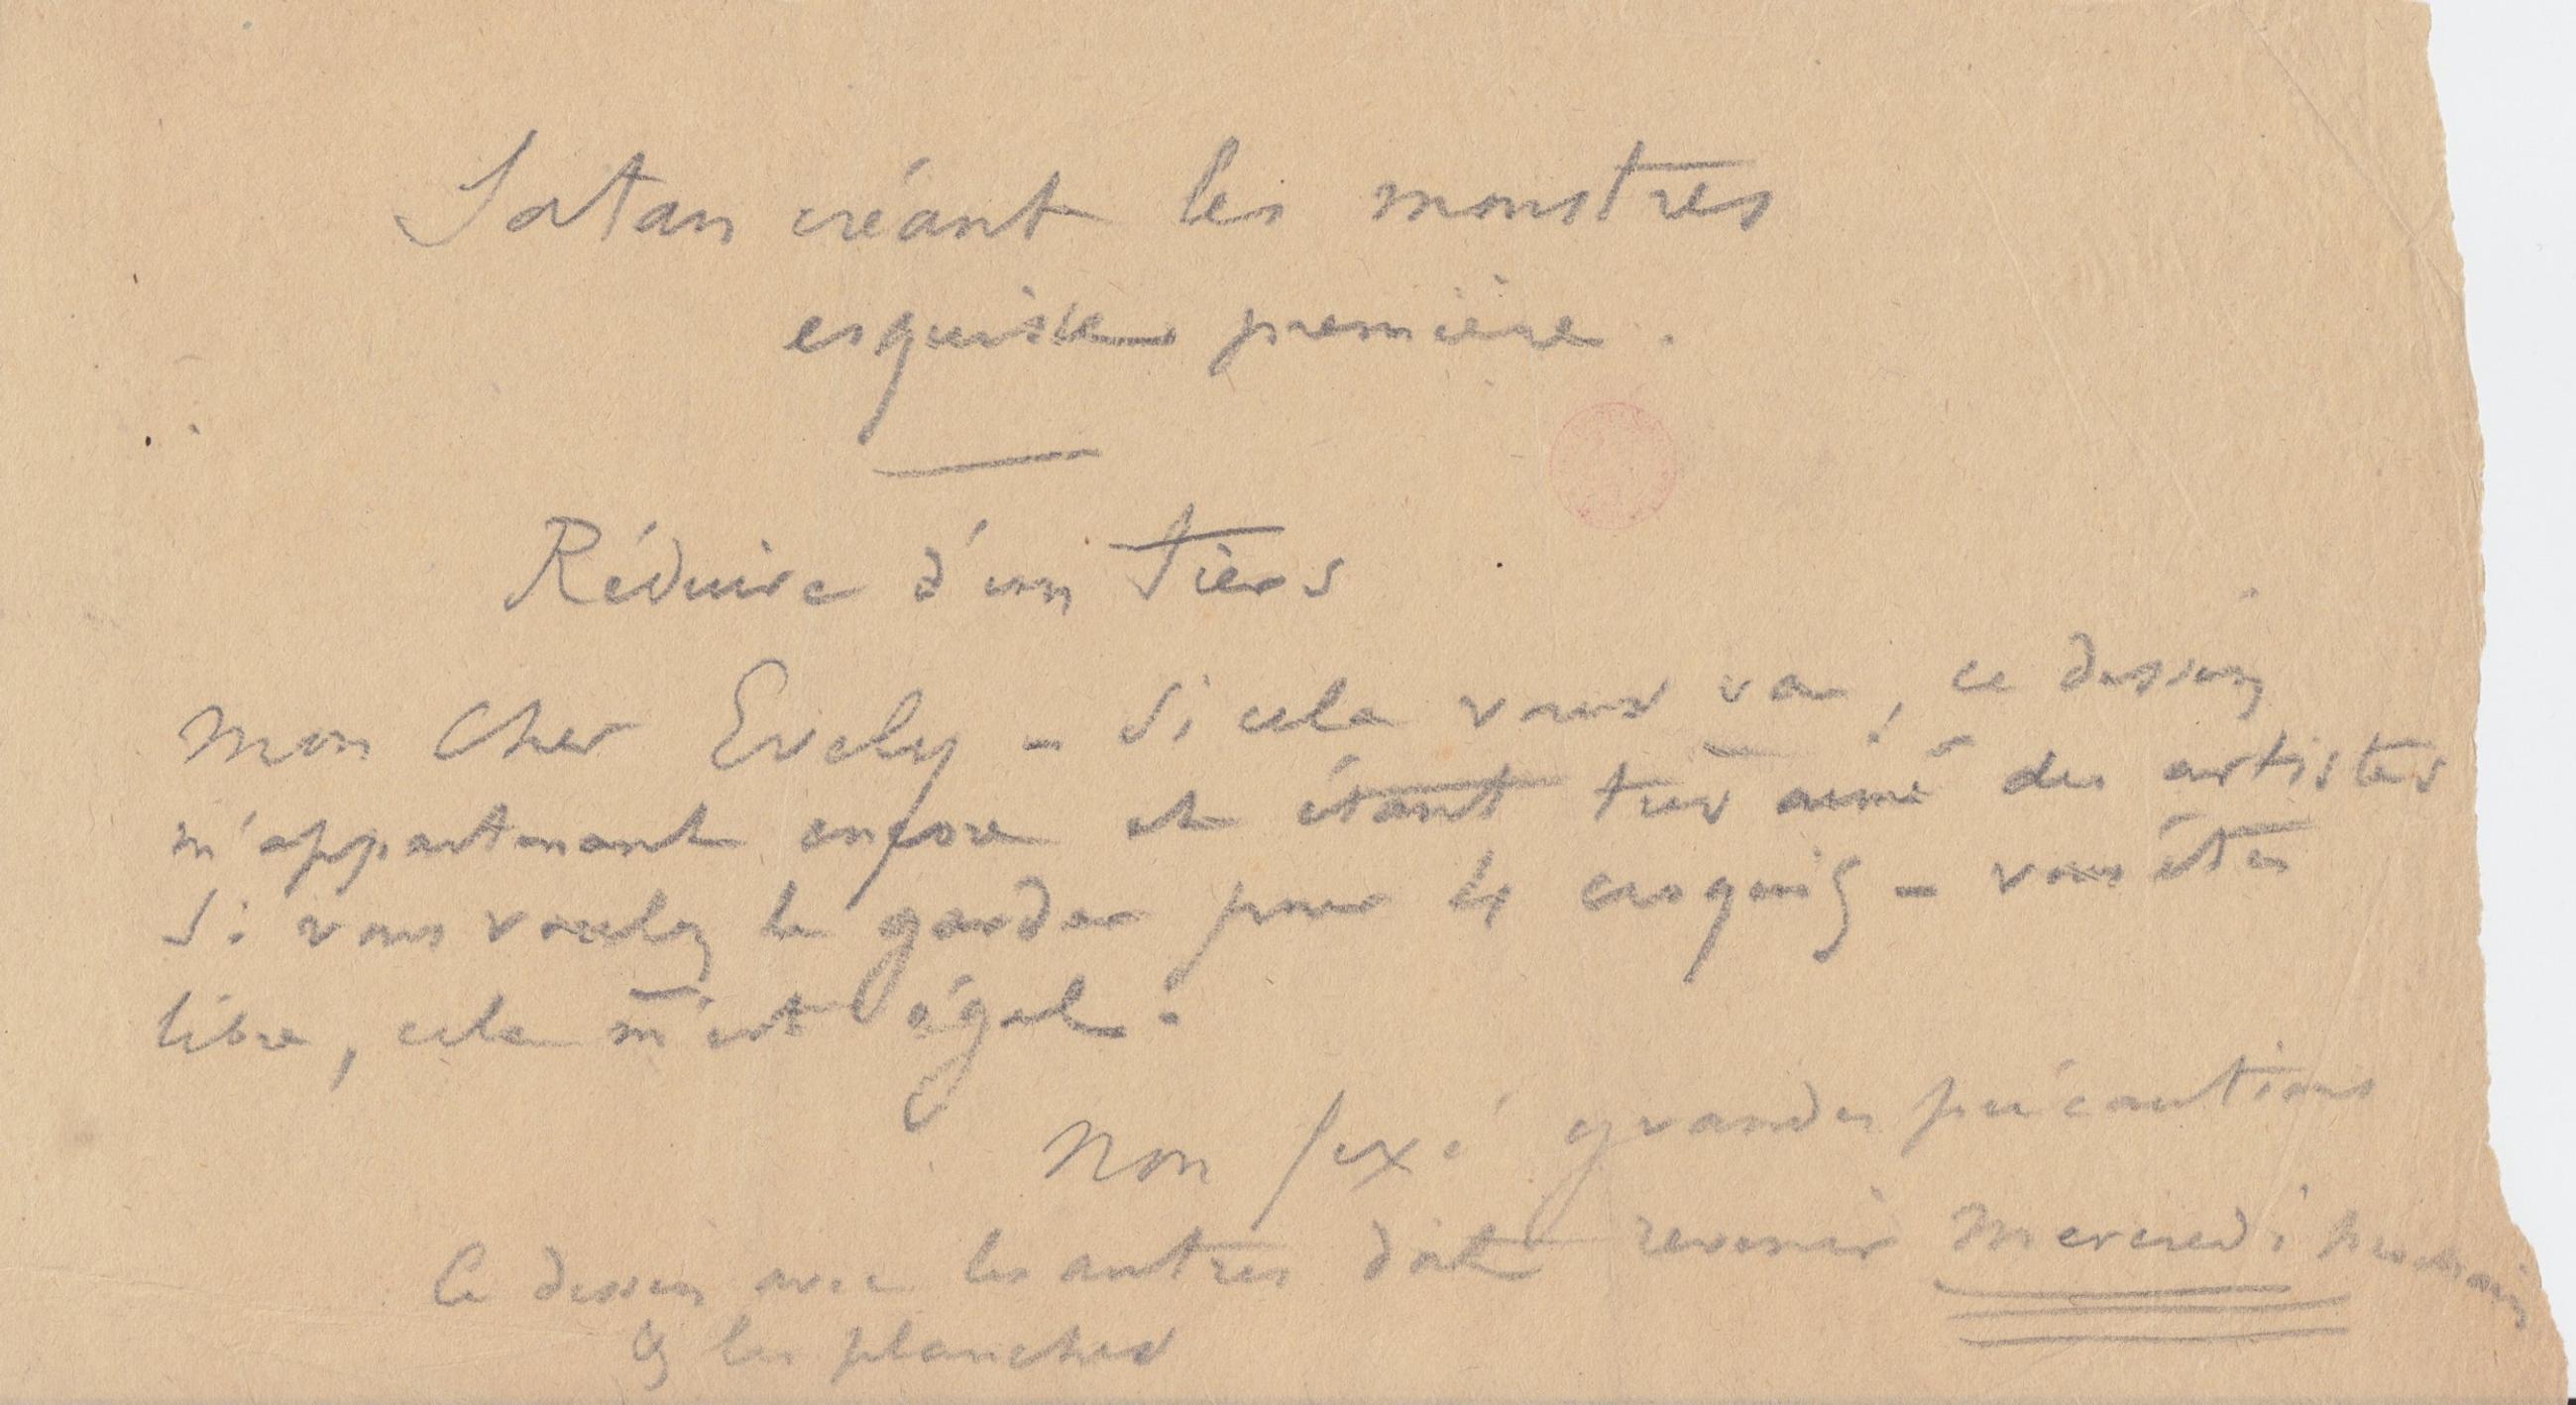 Satan créant les monstres
esquisse première.
Réduire d'un tiers
Mon Cher Evely - Si cela vous va, ce dessin
m'appartenant encore et étant très aimé des artistes
Si vous voulez le garder pour 4 croquis - vous êtes
libre, cela m'est égal.
Non fixé grandes précautions
Ce dessin avec les autres doit revenir Mercredi prochain
& les planches